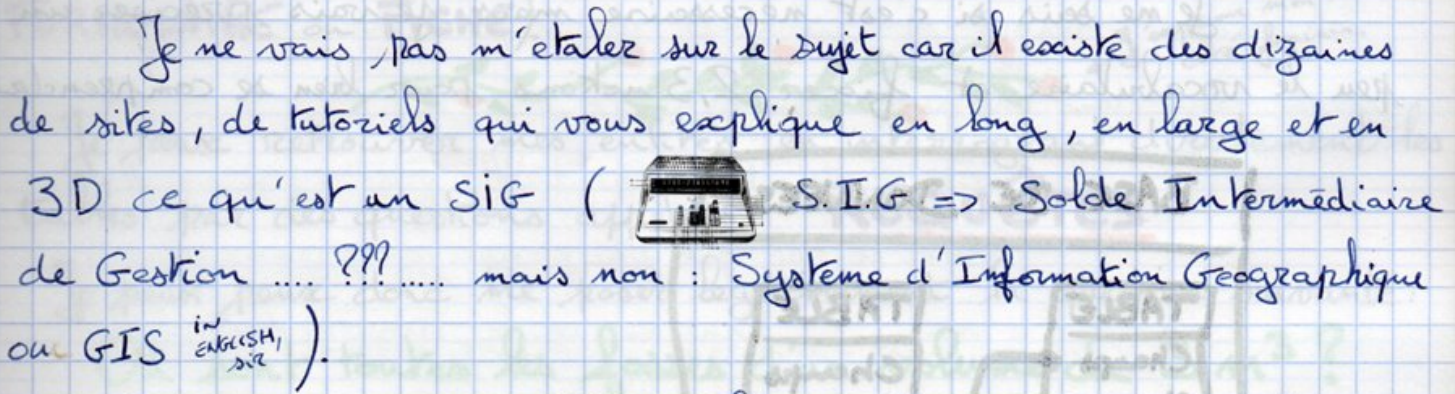 Je ne vais pas m'etaler sur le sujet car il existe des dizaines
de sites, de tutoriels qui vous explique en long, en large et en
3D ce qu'est un SiG ( S.I.G => Solde Intermédiaire
de Gestion .... ??? ..... mais non : Systeme d'Information Geographique
ou GIS iN ENGLISH, siR ).